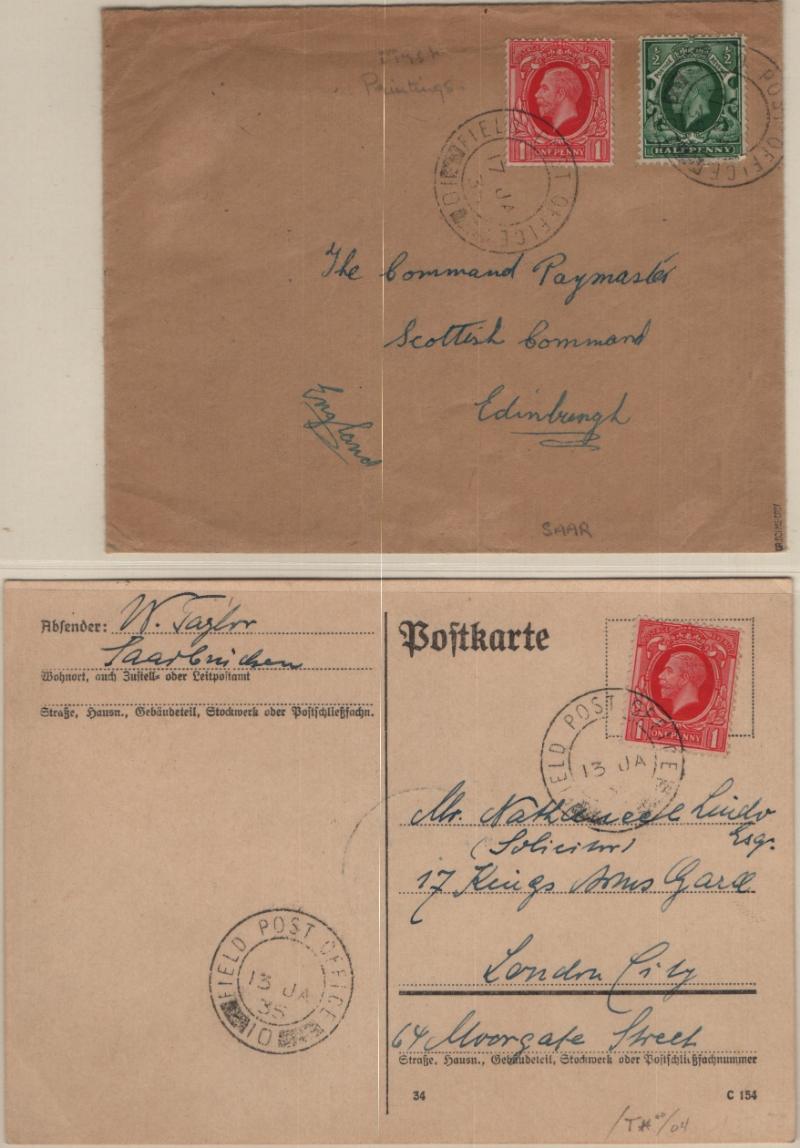 First
Printings.
1 ONE PENNY 1
½ ½
HALFPENNY
FIELD POST OFFICE
17 JA
35
10
POST OFFICE
The Command Paymaster
Scottish Command
Edinburgh
England
SAAR
Absender: W. Taylor
Saarbrücken
Wohnort, auch Zustell- oder Leitpostamt
Straße, Hausn., Gebäudeteil, Stockwerk oder Postschließfachn.
Postkarte
1 ONE PENNY 1
FIELD POST OFFICE
13 JA
Mr. Nathaneel Lindo
Esqr.
(Solicitor)
17 Kings Arms Gard
London City
64 Moorgate Street
Straße, Hausn., Gebäudeteil, Stockwerk oder Postschließfachnummer
FIELD POST OFFICE
13 JA
35
10
34
C 154